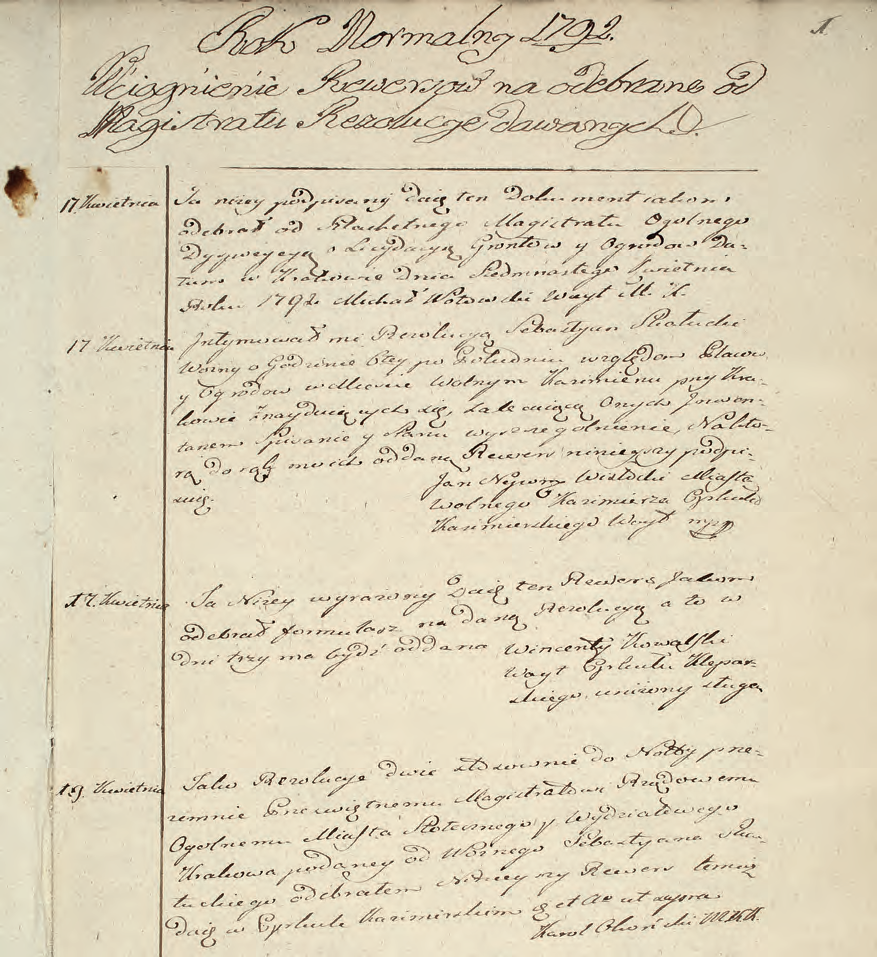 1.
Rok Normalny 1792.
Wciągnienie Rewersow na odebrane od
Magistratu Rezolucye dawanych.
17 Kwietnia Ja niżey podpisany daię ten Dokument iakom
odebrał od Szlachetnego Magistratu Ogolnego
Gruntow y Ogrodow Da-
tum w Krakowie Dnia Siedmnastego Kwietnia
Roku 1792. Michał Woyt M. K.
17 Kwietnia Intymował mi Rezolucyą Sebastyan
Wozny o Godzinie 6tey po Południu względem
y Ogrodow w Mieście Wolnym Kazimierzu przy Kra-
kowie znayduiących się, zalecaiącą Onych Inwen-
tarzem Spisanie y Stanu wyszczegolnienie, Na kto-
rą do rąk moich oddaną Rewers ninieyszy podpi-
suię.
Jan Wisłocki Miasta
Wolnego Kazimierza Cyrkułu
Kazimierskiego Woyt mpp
17. Kwietnia Ja Niżey wyrażony Daię ten Rewers Jakom
odebrał formularz na daną Rezolucyą a to w
dni trzy ma bydź oddana
Wincenty Kowalski
Woyt Cyrkułu Klepar-
skiego uniżony sługa
19 Kwietnia Jako Rezolucye dwie stosownie do Notty prze-
zemnie Przeświętnemu Magistratowi Rządowemu
Ogolnemu Miasta Stołecznego y Wydziałowego
Krakowa podaney od Woznego Sebastyana
odebrałem Ninieyszy Rewers temuż
daię w Cyrkule Kazimirskim d et Ao ut supra
Karol